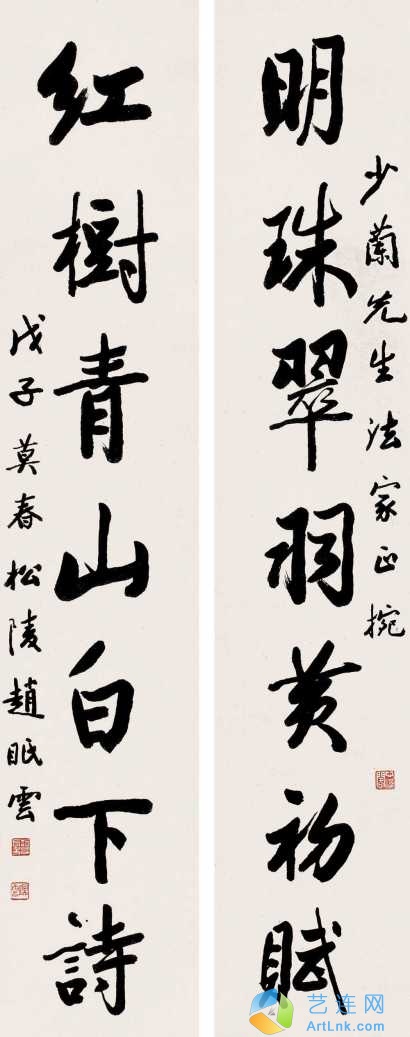 少蘭先生法家正捥
明珠翠羽黄初賦
紅樹青山白下詩
戊子莫春松陵趙眠雲
艺连网
ArtLnk.com